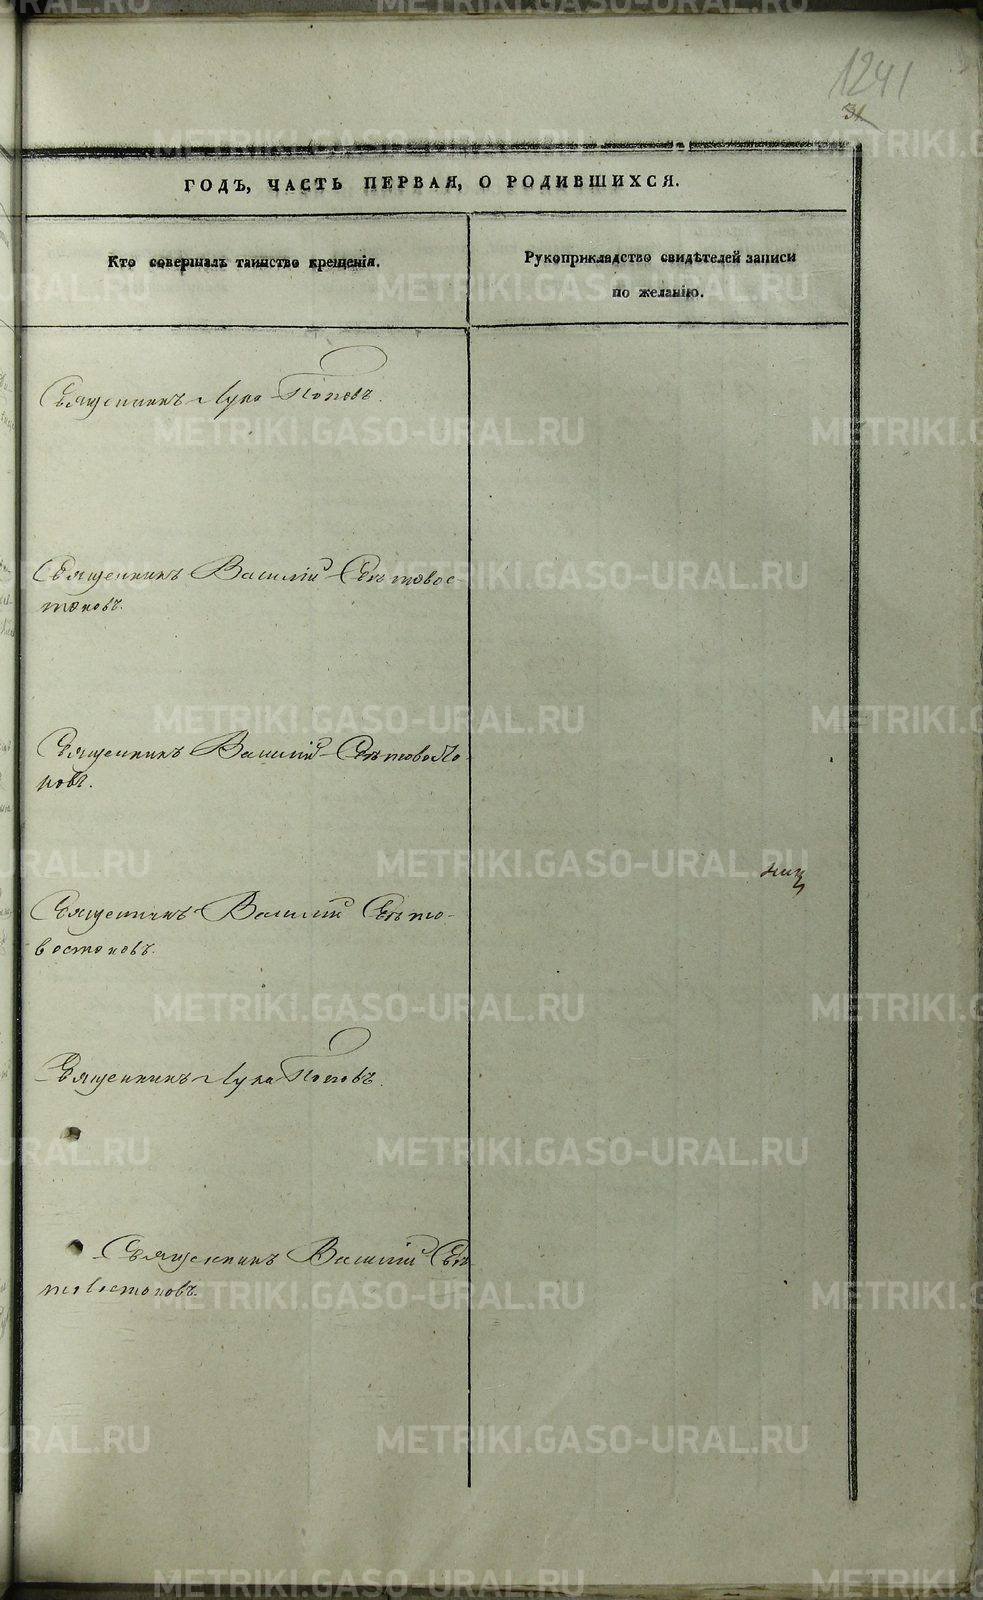 1241
31
ГОДЪ, ЧАСТЬ ПЕРВАЯ, О РОДИВШИХСЯ.
Кто совершалъ таинство крещенія.
Рукоприкладство свидѣтелей записи
по желанію.
Священникъ Лука Поповъ.
Священникъ Василій Свѣтовос-
токовъ.
Священникъ Василій Свѣтовосто-
ковъ.
Священникъ Василій Свѣто-
востоковъ.
Священникъ Лука Поповъ.
Священникъ Василій Свѣ-
товостоковъ.
METRIKI.GASO-URAL.RU